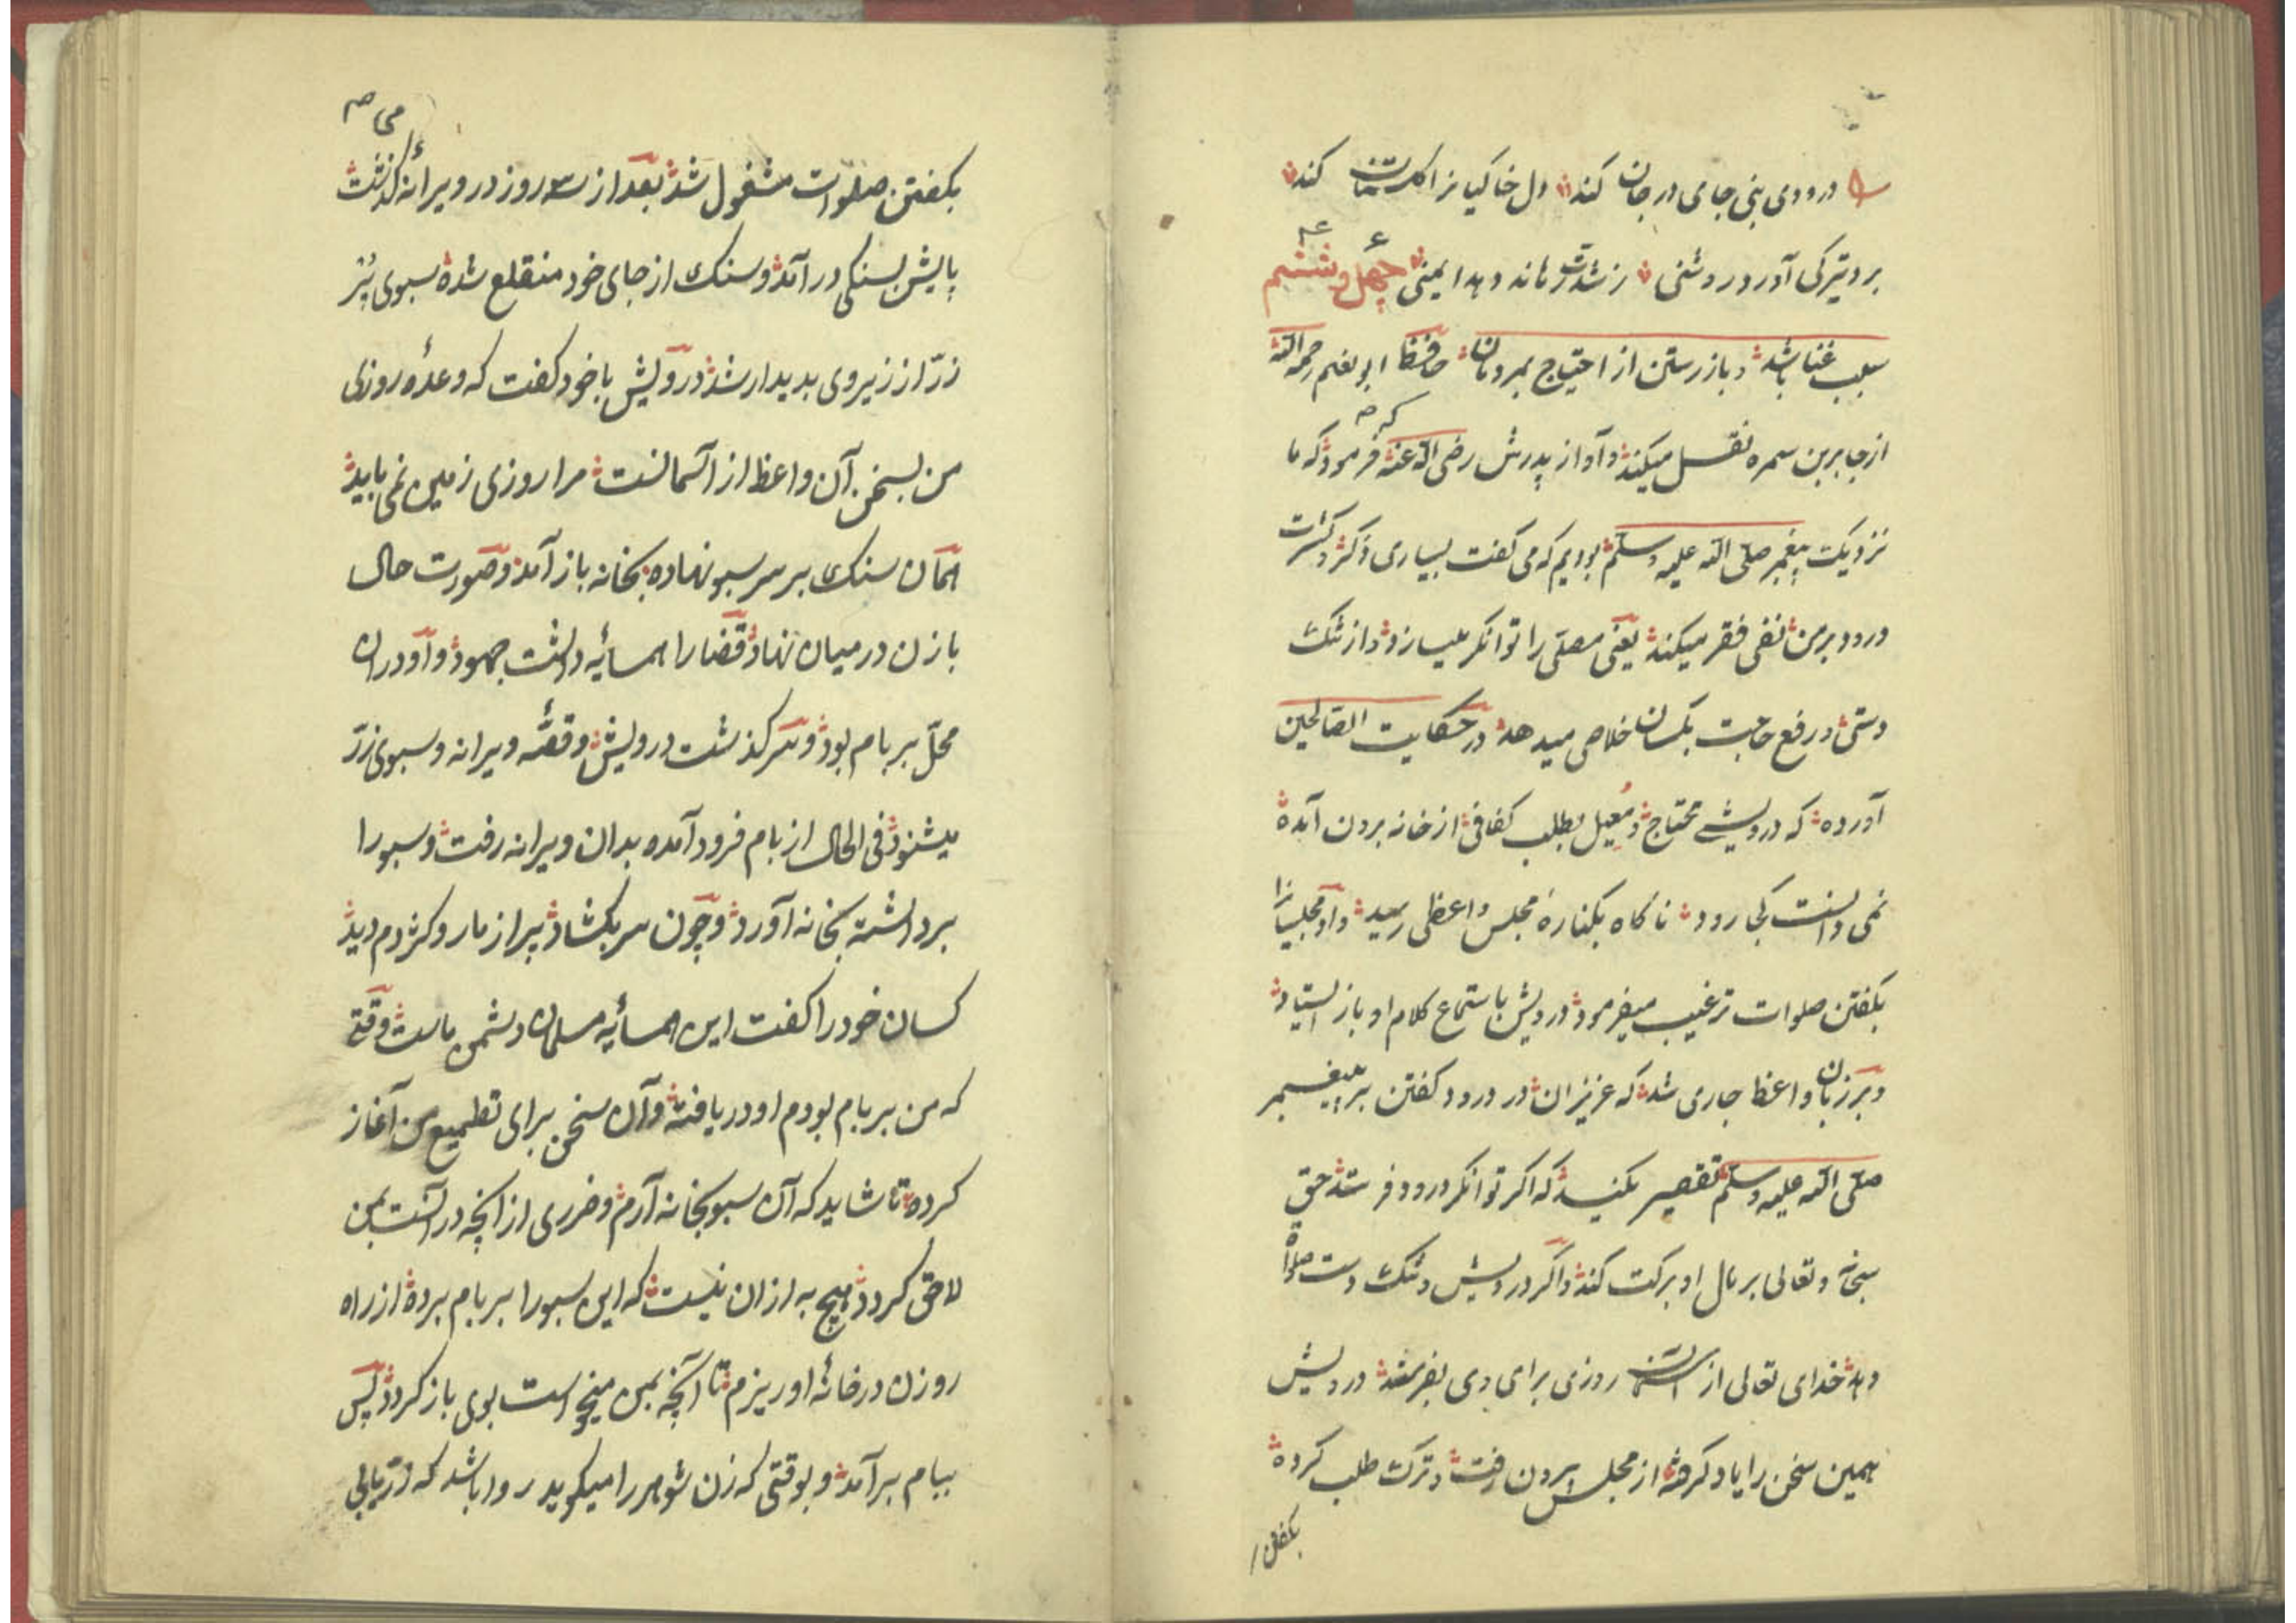 درودی بنی جای در جان کند دل خاکیانرا گلستان کند
برد تیرکی آورد روشنی ز شدت رهاند دهد ایمنی چهل و ششم
سبب غنا باشد و بازرستن از احتیاج بمردمان حافظ ابو نعیم رحمه الله
از جابر بن سمره نقل میکند و او از پدرش رضی الله عنه فرمود که ما
نزدیک پیغمبر صلی الله علیه وسلم بودیم که می کفت بسیاری ذکر و کثرت
درود بر من نفی فقر میکند یعنی مصلی را توانکر میسازد و از تنک
دستی و رفع حاجت بکسان خلاصی میدهد در حکایت الصالحین
آورده که درویشی محتاج و معیل بطلب کفافی از خانه برون آمده
نمی دانست کجا رود ناکاه بکناره مجلس واعظی رسید و او مجلسیانرا
بکفتن صلوات ترغیب میفرمود درویش باستماع کلام او باز ایستاد
و بر زبان واعظ جاری شد که عزیزان در درود کفتن بر پیغمبر
صلی الله علیه وسلم تقصیر مکنید که اکر توانکر درود فرستد حق
سبحانه و تعالی بر مال او برکت کند و اکر درویش و تنک دست صلواة
دهد خدای تعالی از آسمان روزی برای وی بفرستد درویش
همین سخن را یاد کرفته از مجلس برون رفت و ترک طلب کرده
بکفتن
بکفتن صلوات مشغول شد بعد از سه روز در ویرانه می کذشت
پایش بسنکی در آمد و سنک از جای خود منقلع شده سبوی پُر
زر از زیر وی بدیدار شد درویش با خود کفت که وعده روزی
من بسخن آن واعظ از آسمانست مرا روزی زمین نمی باید
همان سنک بر سر سبو نهاده بخانه باز آمد و صورت حال
با زن در میان نهاد قضا را همسایه داشت جهود و او در ان
محل بر بام بود و سرکذشت درویش و قصه ویرانه و سبوی زر
میشنود فی الحال از بام فرود آمده بدان ویرانه رفت و سبو را
برداشته بخانه آورد و چون سر بکشاد پر از مار و کژدم دید
کسان خود را کفت این همسایه مسلمان دشمن ماست وقتی
که من بر بام بودم او دریافته و آن سخن برای تطمیع من آغاز
کرده تا شاید که آن سبو بخانه آرم و ضرری از آنچه در آنست بمن
لاحق کردد هیچ به ازان نیست که این سبو را بر بام برده از راه
روزن در خانه او ریزم تا آنچه بمن میخواست بوی باز کردد پس
ببام بر آمد و بوقتی که زن شوهر را میکوید روا باشد که زر یابی